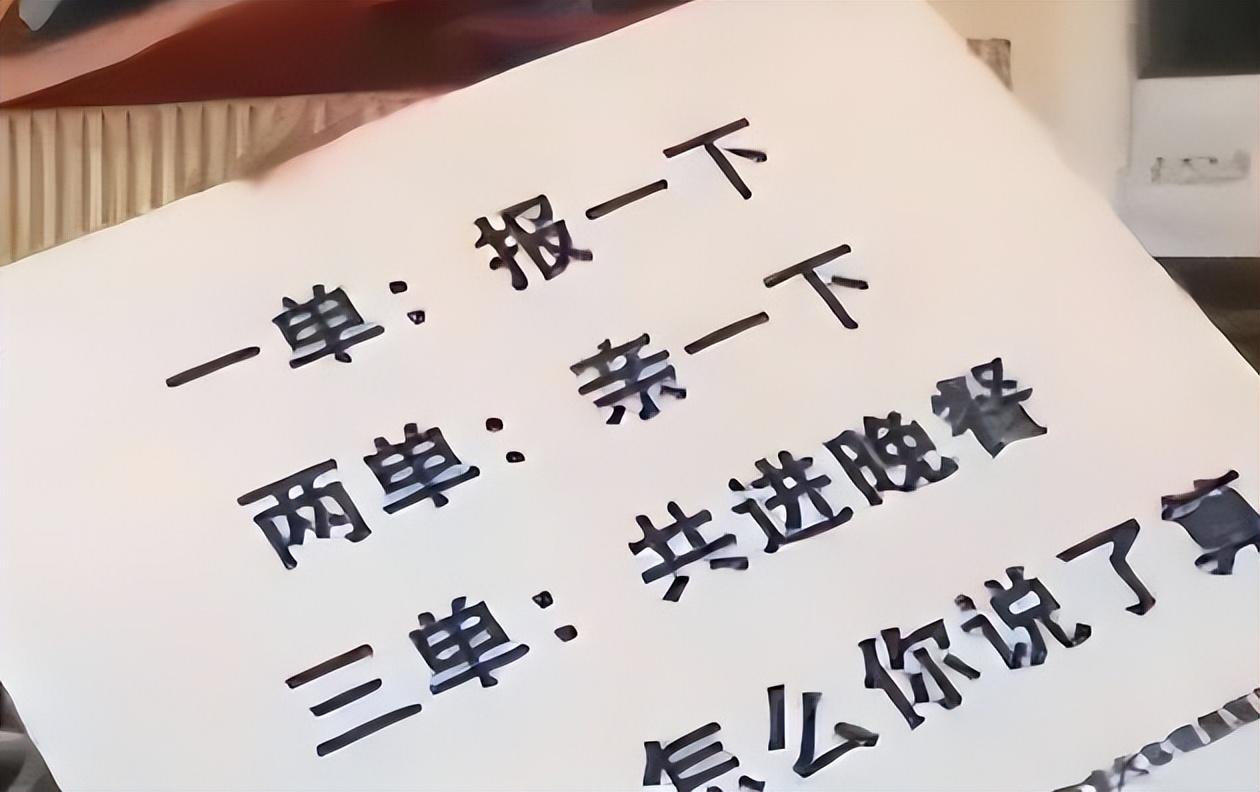 一单：报一下
两单：亲一下
三单：共进晚餐
怎么你说了